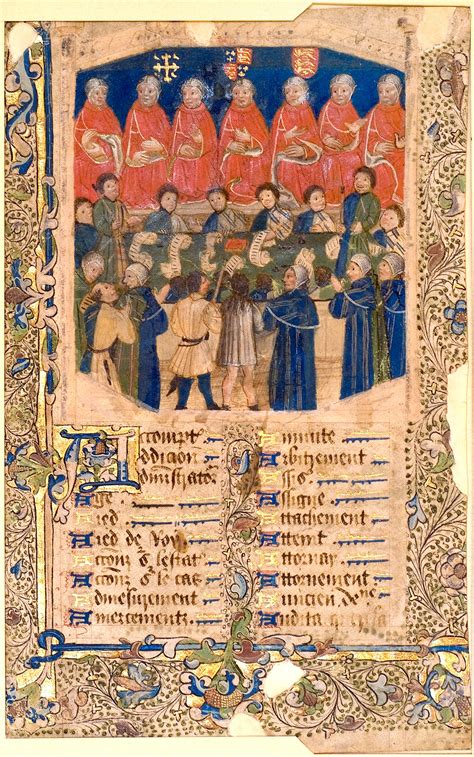 Accompt
ddicion
dministrator
Age
Aied
Aied de Roy
Accioun s lestat
Accioun s le cas
Admesurement
Amercementz
Annuite
Arbitrement
Assis
Assigne
Attachement
Attent
Attornay
Attornement
Auncien
Audita querela